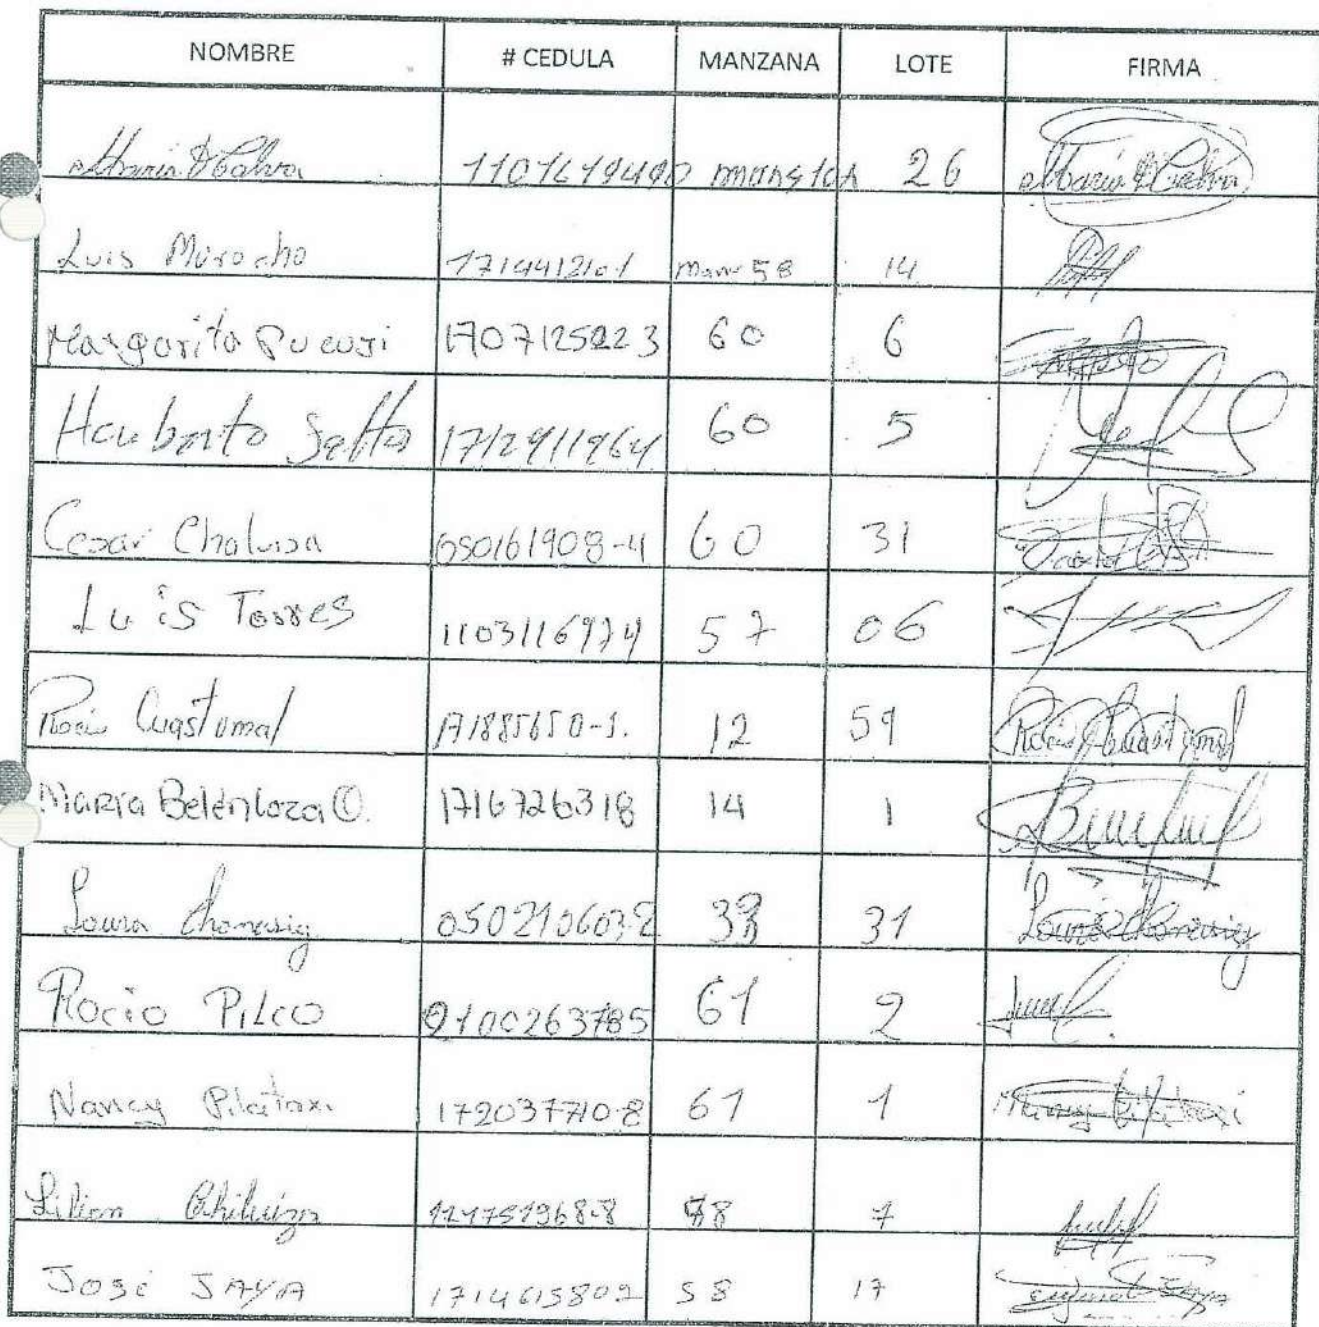 NOMBRE # CEDULA MANZANA LOTE FIRMA
26
Luis Morocho 1714412101 Manz 58 14
Margarita Pucuji 1707125223 60 6
Humberto 1712911964 60 5
Cesar Chaluisa 050161908-4 60 31
Luis Torres 1103116974 57 06
Rocio Cuastumal 171885650-1. 12 59 Rocio Cuastumal
Maria Belen Loza O. 1716726318 14 1
Laura Chonasig 050210603-2 33 31 Laura Chonasig
Rocio PILCO 2100263785 61 2
Nancy Pilataxi 172037710-8 61 1 Nancy Pilataxi
Lilian 58 7
José JAYA 1714615802 58 17